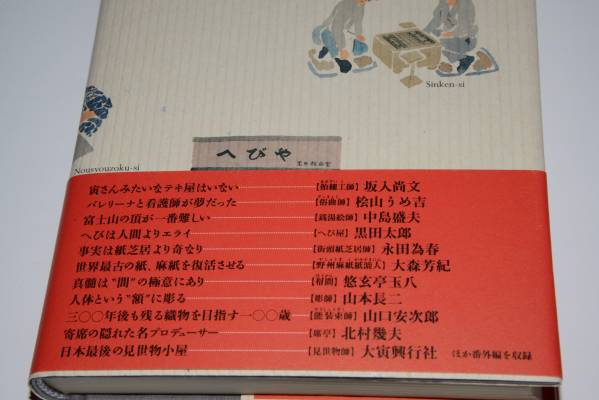 Sinken-si
Nousyouzoku-si
へびや
寅さんみたいなテキ屋はいない【飴細工師】坂入尚文
バレリーナと看護師が夢だった【俗曲師】桧山うめ吉
富士山の頂が一番難しい【銭湯絵師】中島盛夫
へびは人間よりエライ【へび屋】黒田太郎
事実は紙芝居より奇なり【街頭紙芝居師】永田為春
世界最古の紙、麻紙を復活させる【野州麻紙紙漉人】大森芳紀
真髄は"間"の極意にあり【幇間】悠玄亭玉八
人体という"額"に彫る【彫師】山本長二
三〇〇年後も残る織物を目指す一〇〇歳【能装束師】山口安次郎
寄席の隠れた名プロデューサー【席亭】北村幾夫
日本最後の見世物小屋【見世物師】大寅興行社 ほか番外編を収録